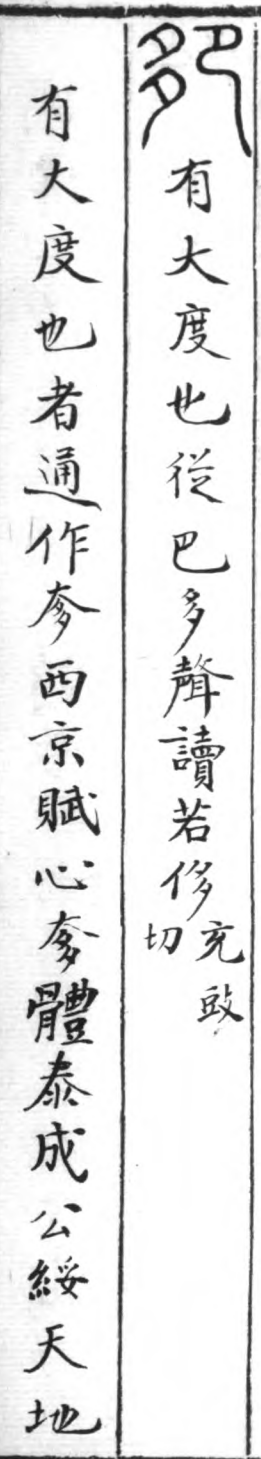 有大度也從巴多聲讀若侈充豉切
有大度也者通作奓西京賦心奓體泰成公綏天地